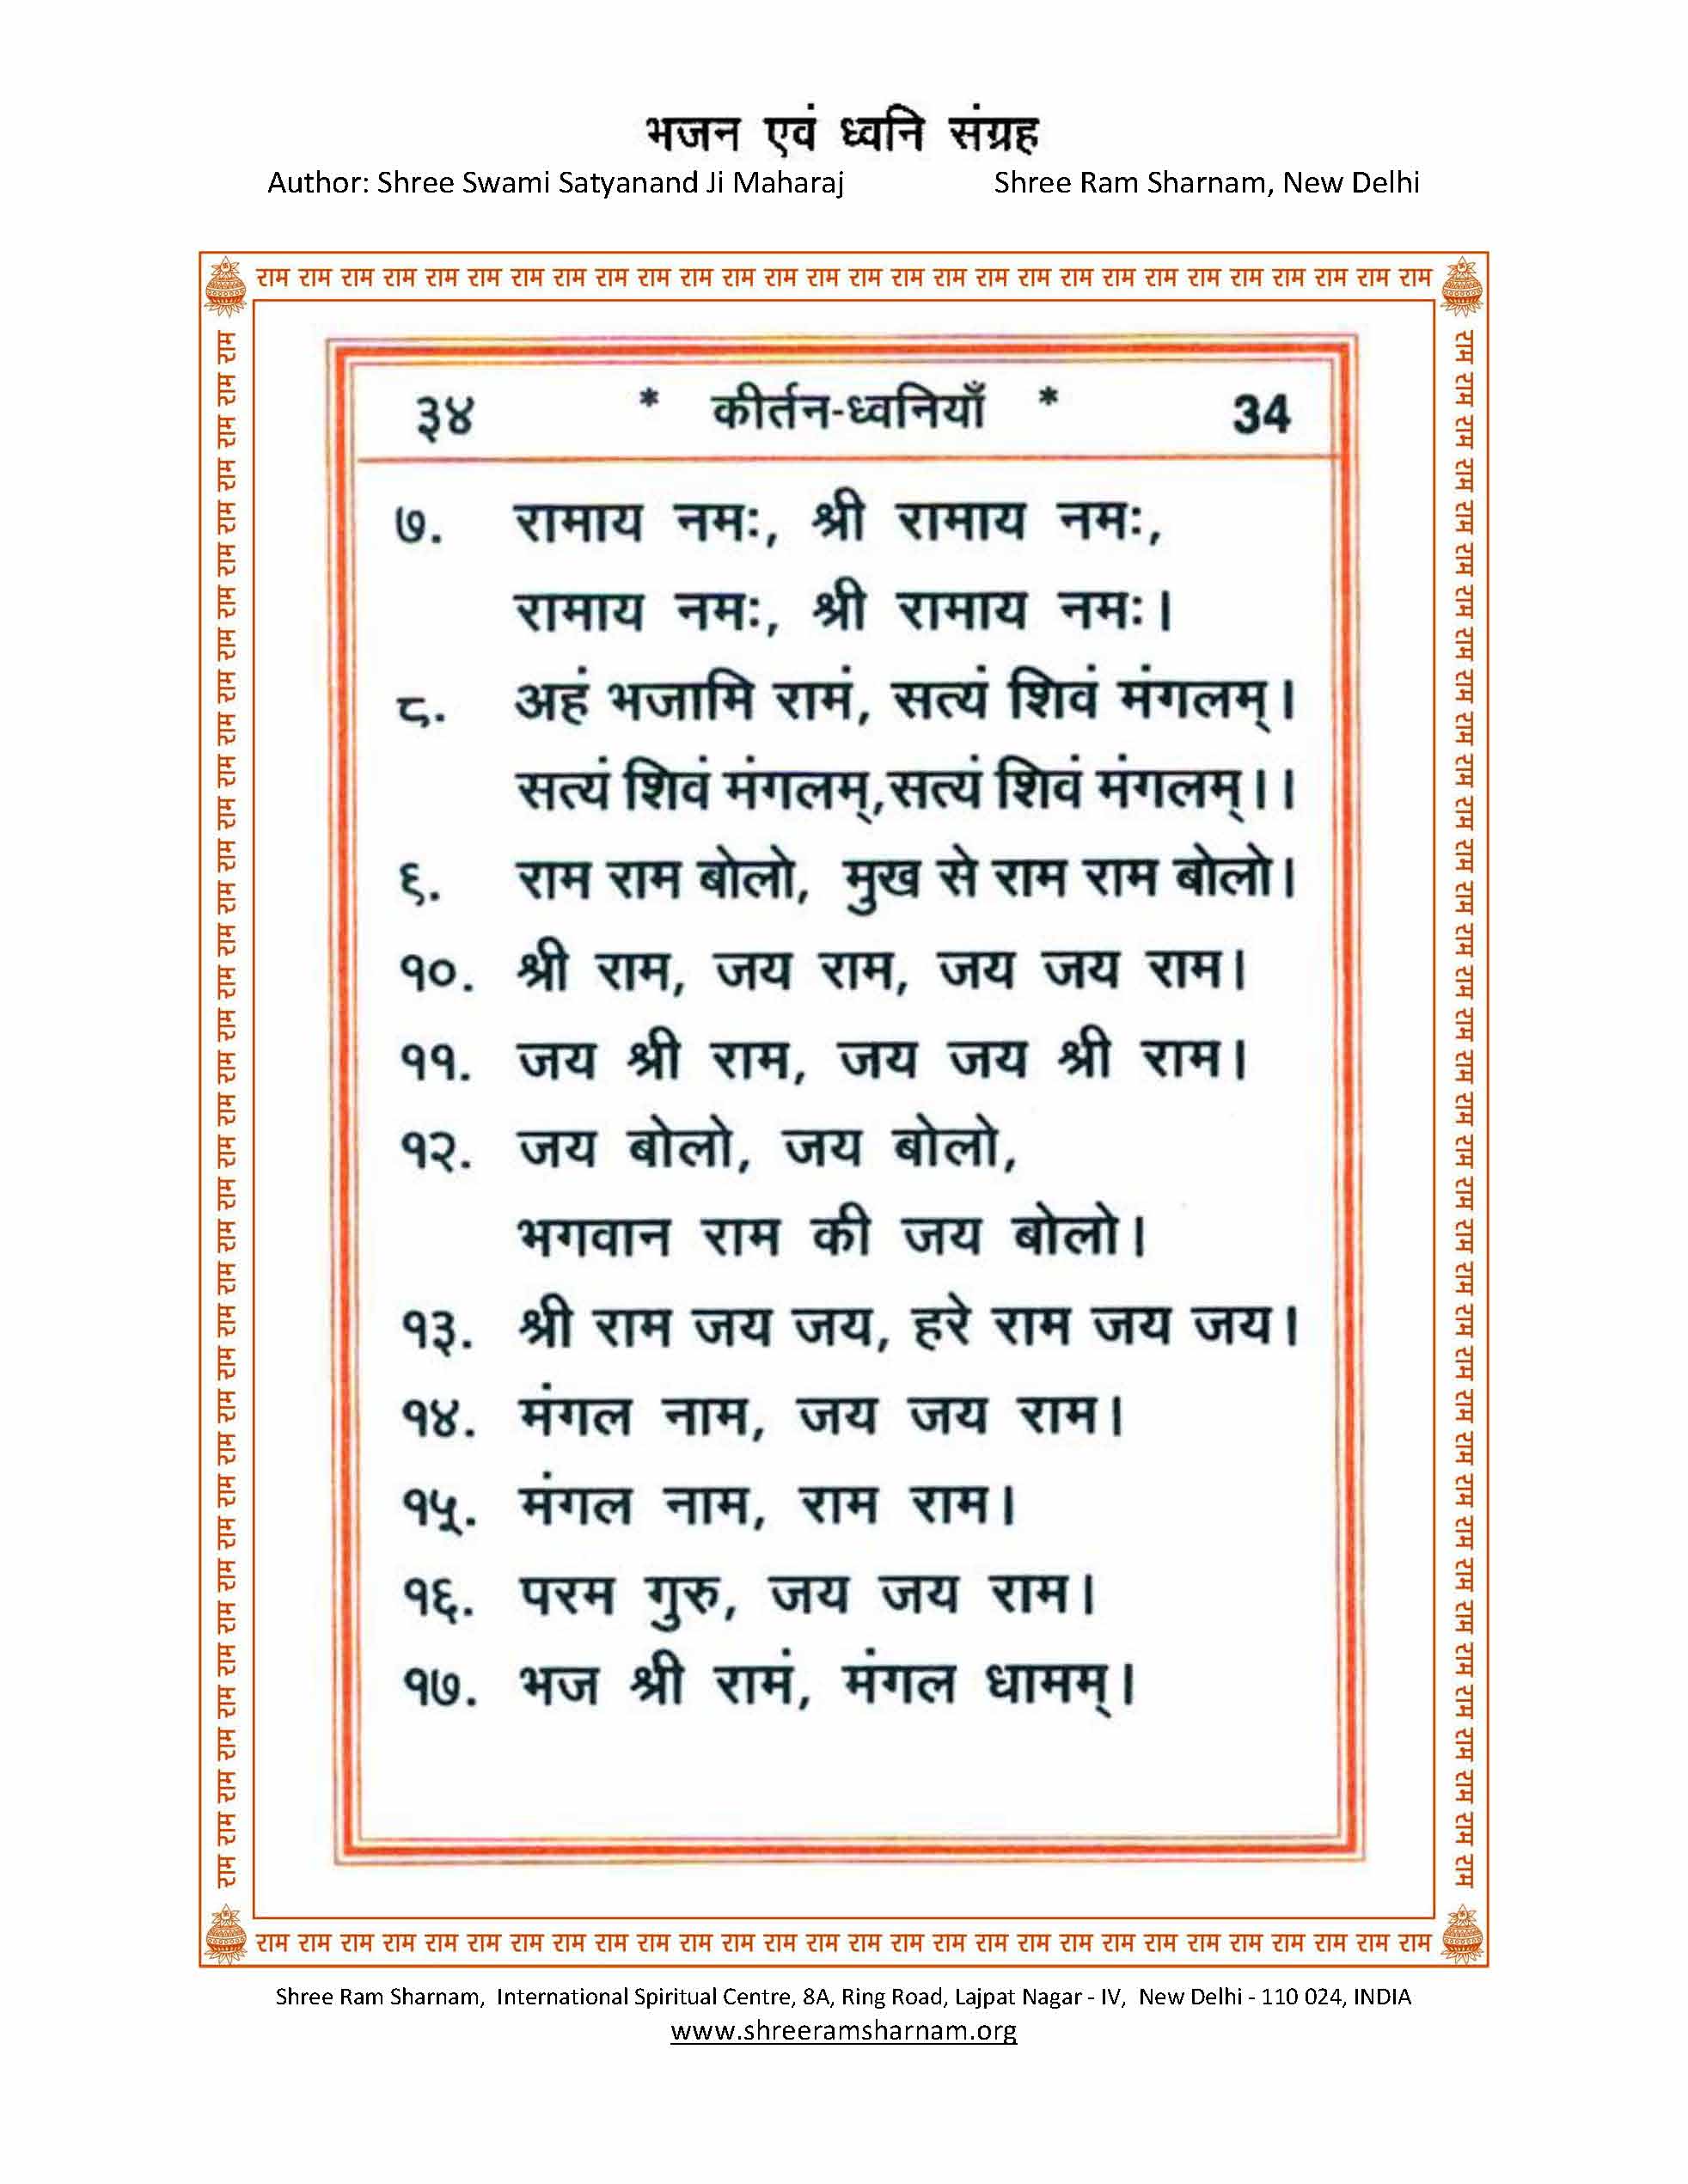 भजन एवं ध्वनि संग्रह
Author: Shree Swami Satyanand Ji Maharaj Shree Ram Sharnam, New Delhi
राम राम राम राम राम राम राम राम राम राम राम राम राम राम राम राम राम राम राम राम राम राम राम राम राम राम राम राम
३४ * कीर्तन-ध्वनियाँ * 34
७. रामाय नमः, श्री रामाय नमः,
रामाय नमः, श्री रामाय नमः।
८. अहं भजामि रामं, सत्यं शिवं मंगलम्।
सत्यं शिवं मंगलम्,सत्यं शिवं मंगलम्।।
९. राम राम बोलो, मुख से राम राम बोलो।
१०. श्री राम, जय राम, जय जय राम।
११. जय श्री राम, जय जय श्री राम।
१२. जय बोलो, जय बोलो,
भगवान राम की जय बोलो।
१३. श्री राम जय जय, हरे राम जय जय।
१४. मंगल नाम, जय जय राम।
१५. मंगल नाम, राम राम।
१६. परम गुरु, जय जय राम।
१७. भज श्री रामं, मंगल धामम्।
राम राम राम राम राम राम राम राम राम राम राम राम राम राम राम राम राम राम राम राम राम राम राम राम राम राम राम राम राम राम राम राम राम राम राम राम राम
राम राम राम राम राम राम राम राम राम राम राम राम राम राम राम राम राम राम राम राम राम राम राम राम राम राम राम राम राम राम राम राम राम राम राम राम राम
राम राम राम राम राम राम राम राम राम राम राम राम राम राम राम राम राम राम राम राम राम राम राम राम राम राम राम राम
Shree Ram Sharnam, International Spiritual Centre, 8A, Ring Road, Lajpat Nagar - IV, New Delhi - 110 024, INDIA
www.shreeramsharnam.org